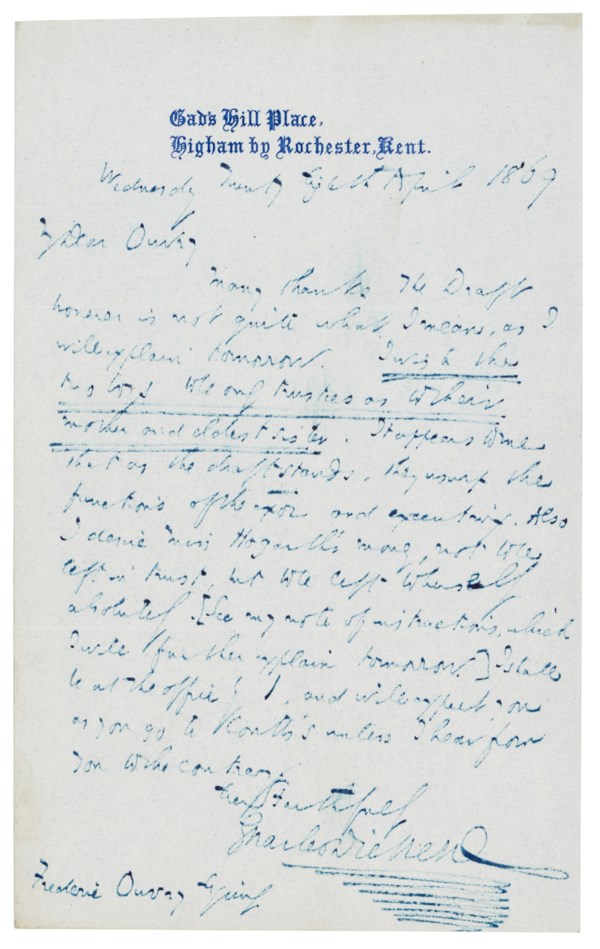 Gad's Hill Place,
Higham by Rochester, Kent.
Wednesday Twenty Eighth April 1869
My Dear Ouvry
Many thanks. The Draft
however is not quite what I mean, as I
will explain tomorrow. I wish the
two boys to be only trustees as to their
mother and eldest sister. It appears to me
that as the draft stands, they usurp the
functions of the exor and executrix. Also
I desire Miss Hogarth's money, not to be
left in trust, but to be left to herself
absolutely. [See my note of instructions, which
I will further explain tomorrow.] I shall
be at the office by 1, and will expect you
as you go to Coutts's unless I hear from
you to the contrary.
Ever Faithfully
Charles Dickens
Frederic Ouvry Esquire